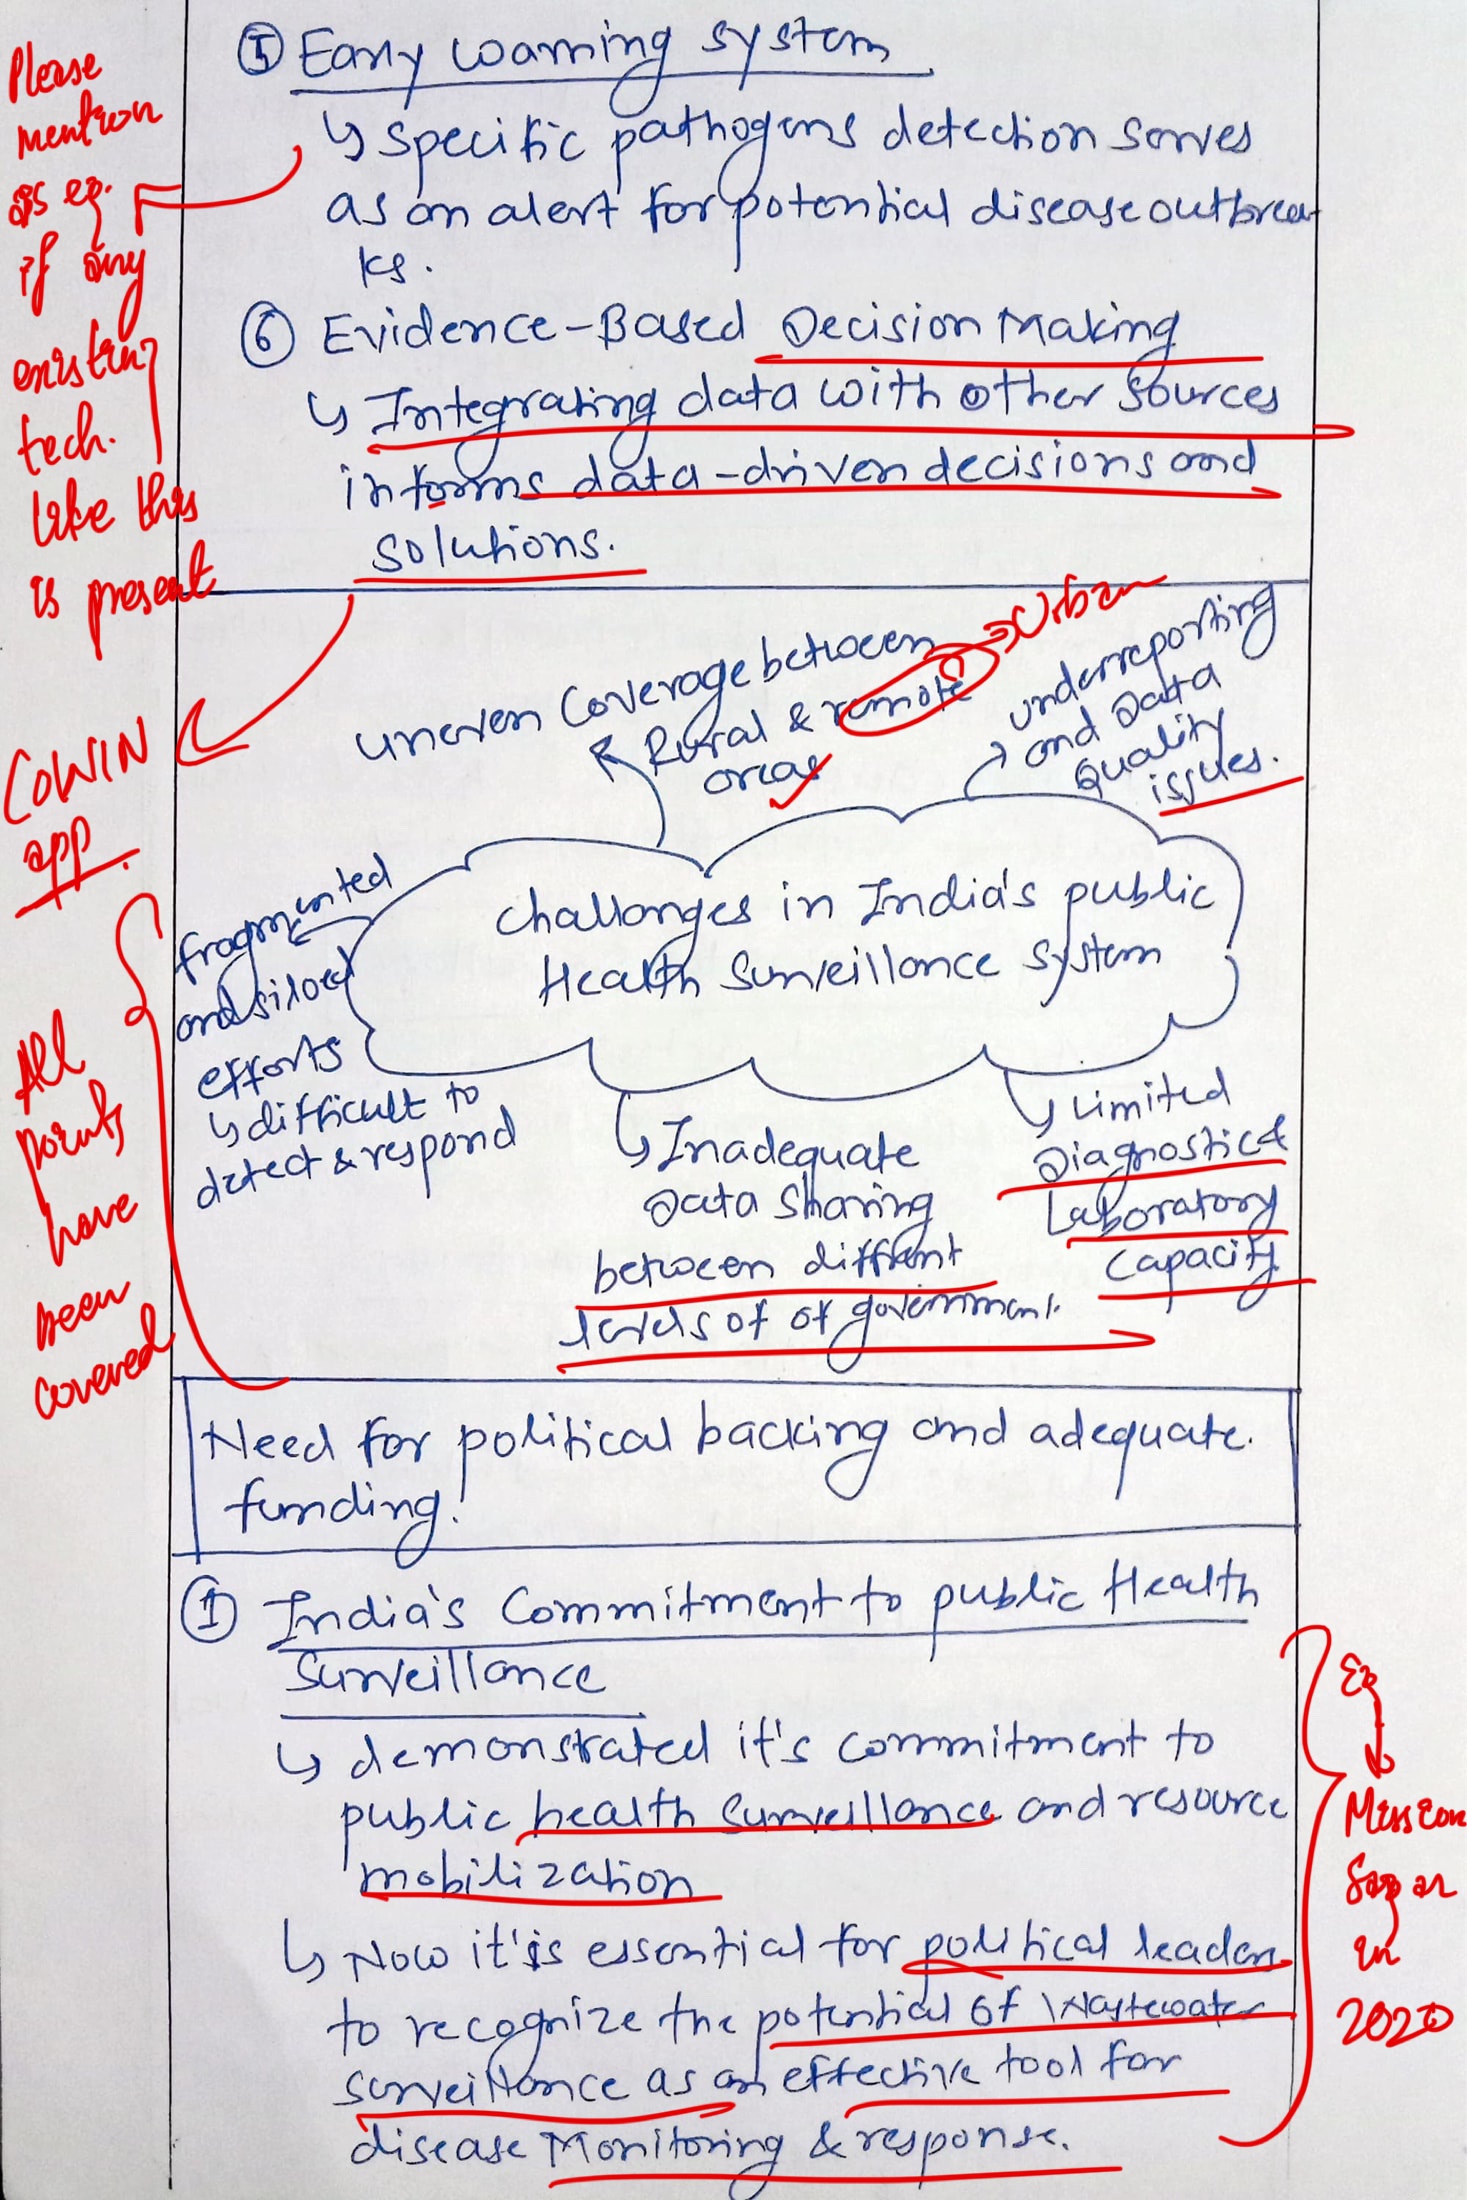 ⑤ Early warning system
↳ specific pathogens detection serves
as an alert for potential disease outbrea
ks.
Please
mention
as eg.
if any
existing
tech.
like this
is present
⑥ Evidence-Based Decision Making
↳ Integrating data with other sources
informs data-driven decisions and
solutions.
CoWIN
app.
uneven coverage between
Rural & remote
areas
→ Urban
underreporting
and Data
Quality
issues.
challenges in India's public
Health Surveillance system
fragmented
and siloed
efforts
↳ difficult to
detect & respond
↳ Inadequate
Data Sharing
between diffrent
levels of of government.
↳ Limited
Diagnostic &
Laboratory
capacity
All
points
have
been
covered
Need for political backing and adequate.
funding.
① India's Commitment to public Health
Surveillance
↳ demonstrated it's commitment to
public health surveillance and resource
mobilization
↳ Now it's essential for political leaders
to recognize the potential of Wastewater
surveillance as an effective tool for
disease Monitoring & response.
Eg
Mission
Sagar
in
2020